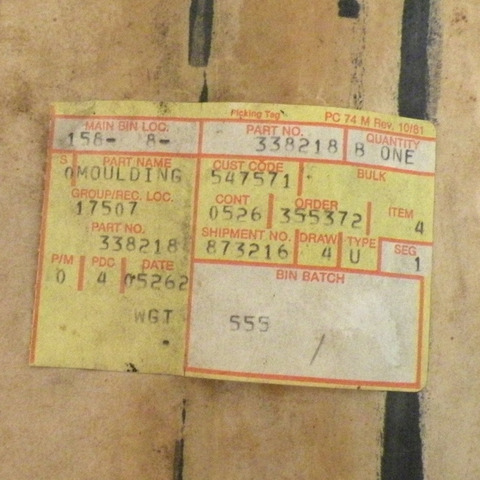 Picking Tag PC 74 M Rev. 10/81
MAIN BIN LOC. PART NO. QUANTITY
158- 8- 338218 8 ONE
S PART NAME CUST CODE BULK
0MOULDING 547571
GROUP/REC. LOC. CONT ORDER ITEM
17507 0526 355372 4
PART NO. SHIPMENT NO. DRAW TYPE SEG
338218 873216 4 U 1
P/M PDC DATE BIN BATCH
0 4 05262
WGT 555
/